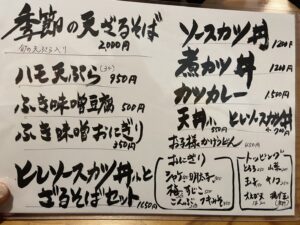 季節の天ざるそば
2000円
旬の天ぷら入り
ハモ天ぷら
950円
ふき味噌豆腐 500円
ふき味噌おにぎり
350円
ヒレソースカツ丼小と
ざるそばセット 1650円
ソースカツ丼 1200円
煮カツ丼 1200円
カツカレー 1500円
天丼小 ヒレソースカツ丼
550円
お子様かけうどん
おにぎり
シャケ 明太子
梅 すじこ
こんぶ フキみそ
トッピング
とろろ 山菜
玉子
大エビ天